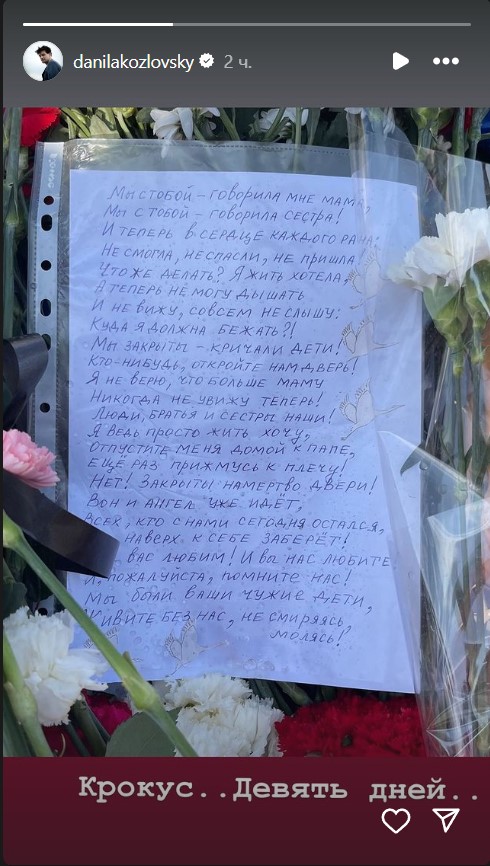 danilakozlovsky 2 ч.
Мы с тобой – говорила мне мама,
Мы с тобой – говорила сестра!
И теперь в сердце каждого рана:
Не смогла, не спасли, не пришла.
Что же делать? Я жить хотела,
А теперь не могу дышать
И не вижу, совсем не слышу:
Куда я должна бежать?!
Мы закрыты – кричали дети!
Кто-нибудь, откройте нам дверь!
Я не верю, что больше маму
Никогда не увижу теперь!
Люди, братья и сестры наши!
Я ведь просто жить хочу,
Отпустите меня домой к папе,
Ещё раз прижмусь к плечу!
Нет! Закрыты намертво двери!
Вон и ангел уже идёт,
Всех, кто с нами сегодня остался,
наверх к себе заберёт!
вас любим! И вы нас любите
И, пожалуйста, помните нас!
Мы были ваши чужие дети,
Живите без нас, не смиряясь,
молясь!
Крокус..Девять дней..